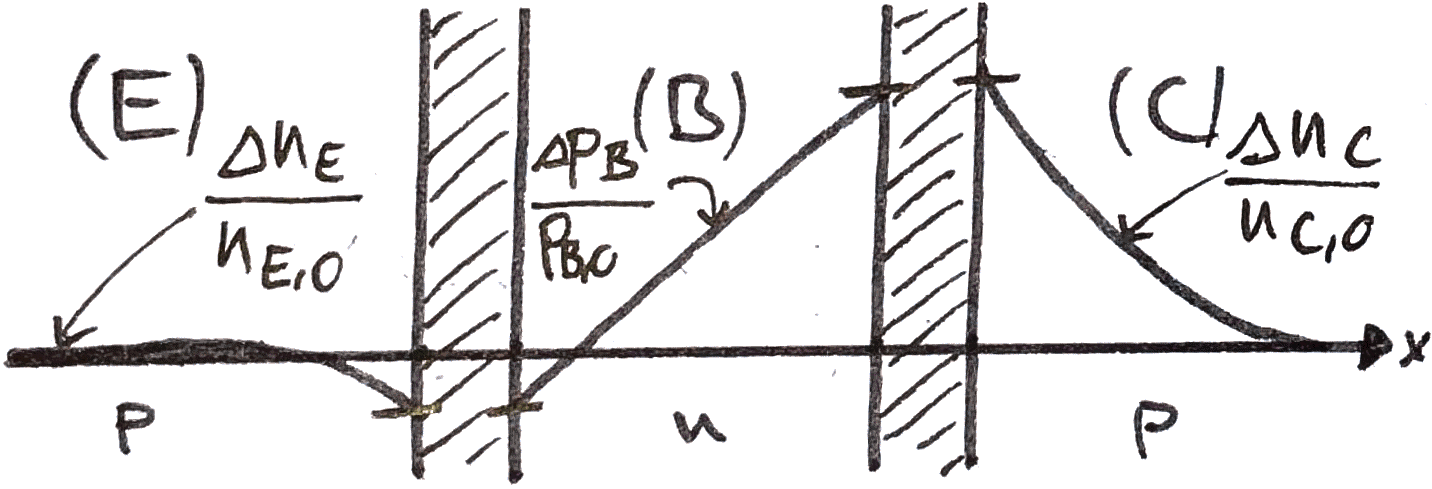 (E) (B) (C)
Δn_E / n_E,0
Δp_B / p_B,0
Δn_C / n_C,0
x
p n p